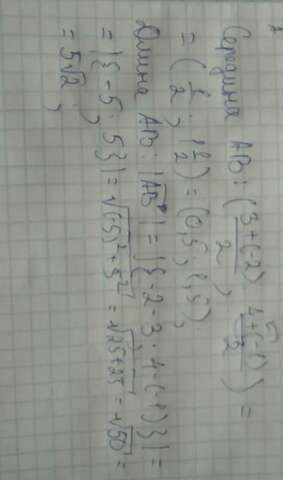 Середина AB: (3+(-2)/2; 4+(-1)/2) =
= (1/2; 1 1/2) = (0,5; 1,5);
Длина AB: |AB| = |{-2-3; 4-(-1)}| =
= |{-5; 5}| = √(-5)²+5² = √25+25 = √50 =
= 5√2;